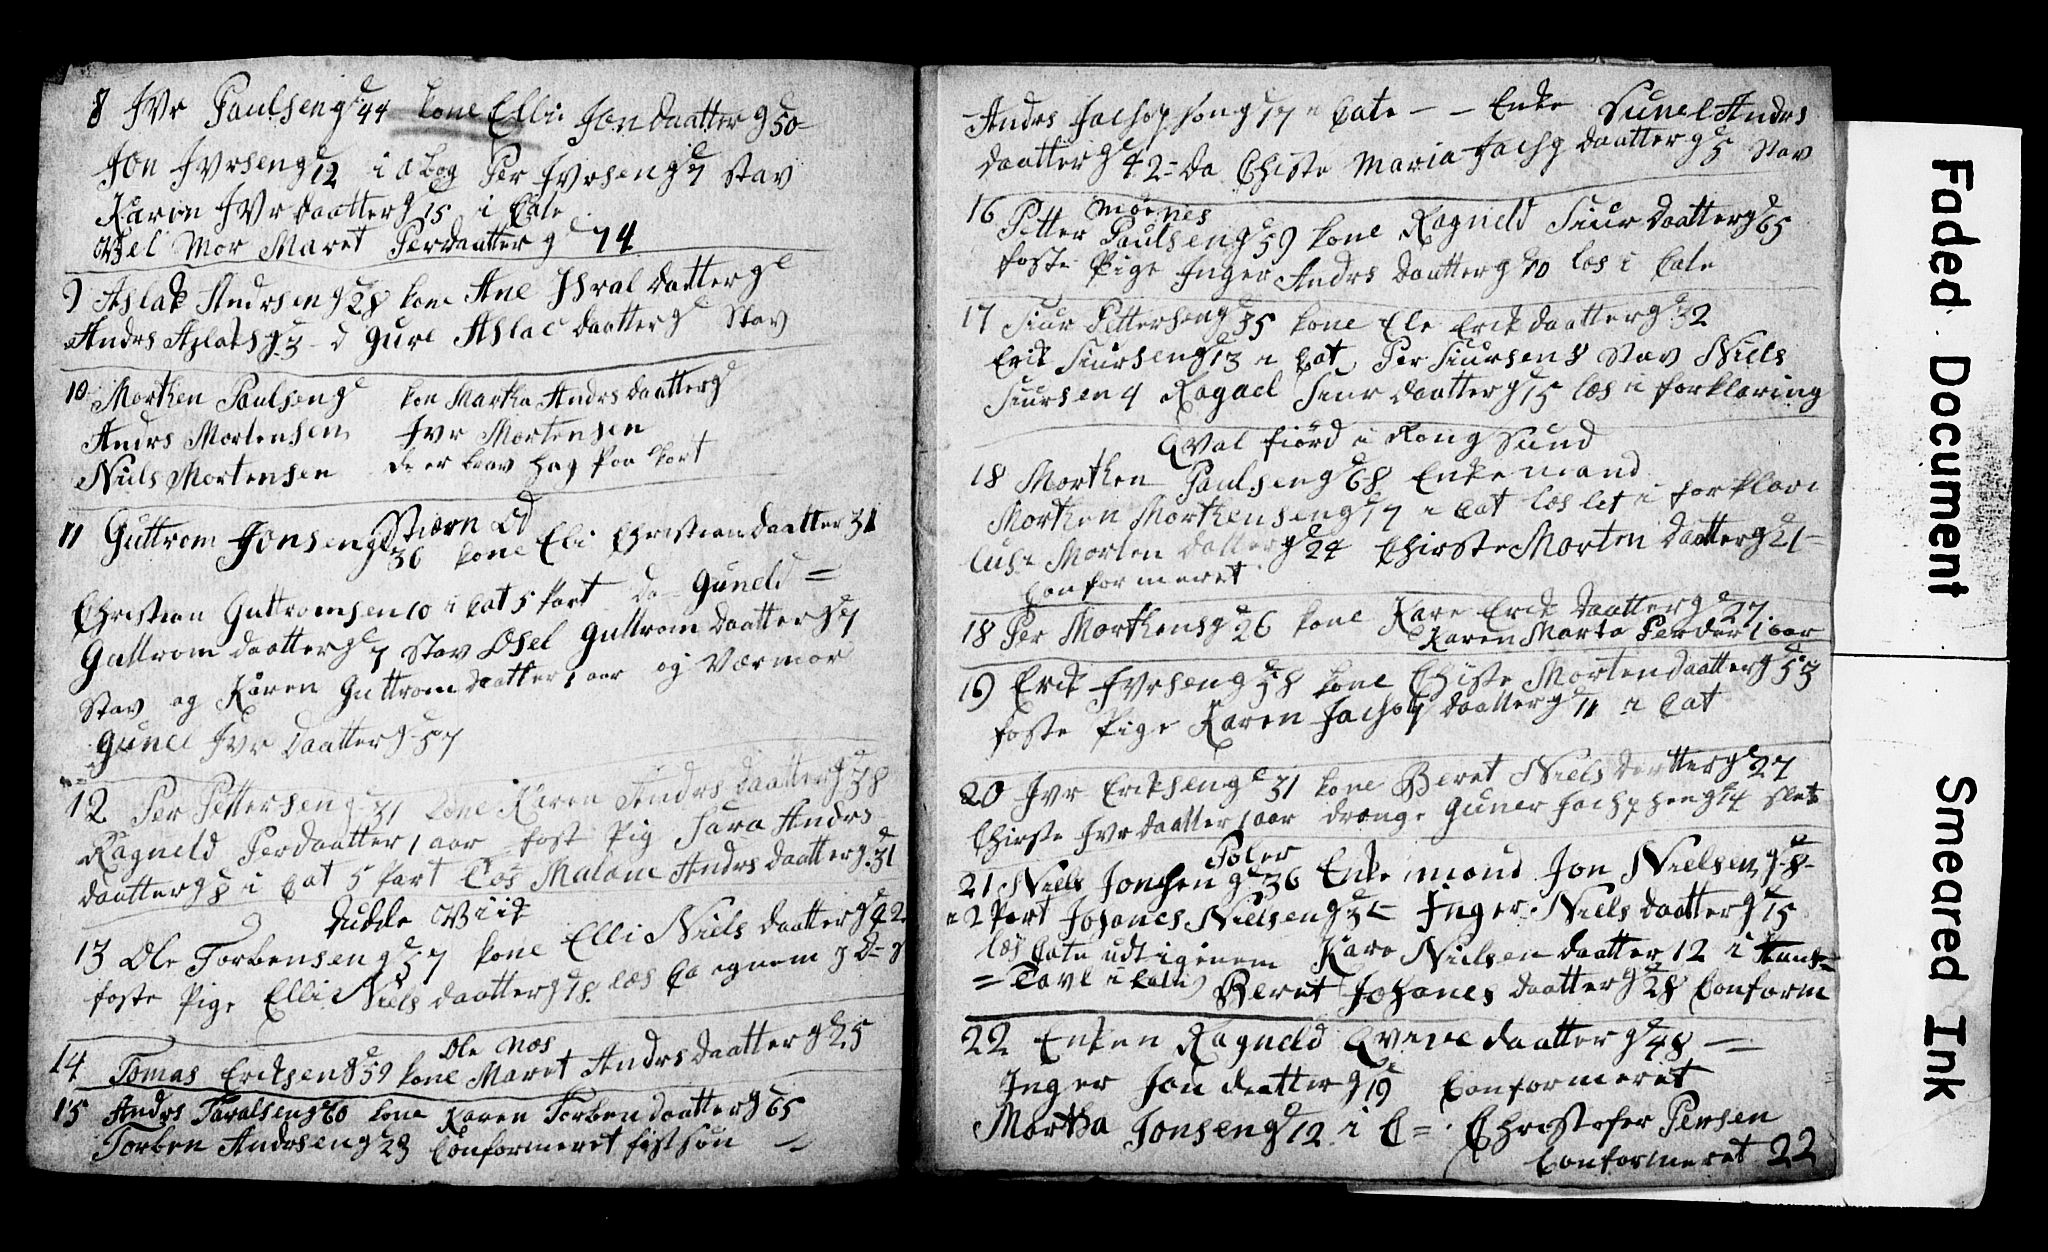 8 Jvr Paulsen gl 44 kone Elli Jon daatter gl 50
Jon Jvrsen gl 12 i a bog Per Jvrsen gl 7 Stav
Karen Jvr daatter gl 15 i Cate
Mor Maret Perdaatter gl 74
9 Aslak Andrsen gl 28 kone Ane Isral daatter gl
Andrs Aslaks gl 3 d Gure Aslac daatter gl Stav
10 Morthen Paulsen gl kon Martha Andrs daatter gl
Andrs Mortensen Jvr Mortensen
Niels Mortensen de er
Stiern Od
11 Guttrom Jonsen gl 36 kone Eli Christian daatter 31
Christian Guttromsen 10 i Cat 5 Part do Guneld =
Guttrom daatter gl 7 Stav Osel Guttrom daatter gl 7
Stav og Karen Guttrom daatter 1 aar og Værmor
Gunel Jvr daatter gl 57
12 Per Pettersen gl 31 kone Karen Andrs daatter gl 38
Ragneld Perdaatter 1 aar fost Pig Sara Andrs
daatter gl 8 i Cat 5 Part Los Malene Andrs daatter gl 31
Ludde Wiik
13 Ole Torbensen gl 57 kone Elli Niels daatter gl 42
foste Pige Elli Niels daatter gl 18 læs Ca egnem
Ole Nos
14 Tomas Ericksen gl 59 kone Maret Andrs daatter gl 25
15 Andrs Taralsen gl 60 kone Karen Torben daatter gl 65
Torben Andrsen gl 23 Conformeret
Andrs Jachopson gl 17 i Cate - - Enke Sunel Andrs
daatter gl 42 = da Chiste Maria Jachp daatter gl 5 Stav
moenes
16 Petter Paulsen gl 59 kone Ragneld Siur daatter gl 65
foste Pige Inger Andrs daatter gl 10 læs i Cate
17 Siur Pettersen gl 35 kone Ele Erick daatter gl 32
Erick Siursen gl 13 i Cat Per Siursen 8 Stav Niels
Siursen 4 Ragnel Siur daatter gl 15 læs i forklaring
Qval fiord i Rong Sund
18 Morthen Paulsen gl 68 Enkemand
Morthen Morthensen gl 17 i Cat læs let i forklari
Morten datter gl 24 Chirste Morten daatter gl 21 -
Conformeret
18 Per Morthens gl 26 kone Kare Erick daatter gl 27
Karen Marta Perdatr 1 aar
19 Erick Jvrsen gl 58 kone Chiste Morten daatter gl 53
foste Pige Karen Jachop daatter gl 11 i Cat
20 Jvr Ericksen gl 31 kone Beret Niels daatter gl 27
Chirste Jvr daatter 1 aar drænge Guner Jachphen gl 14 slet
Poler
21 Niels Jonsen gl 36 Enke mand Jon Nielsen gl 8
i 2 Part Johanes Nielsen gl 3 Inger Niels daatter gl 15
læs Cate udt igenem Kare Nielsen daatter 12 i
= Tavl i Cate Beret Johanes daatter gl 28 Conform
22 Enken Ragneld Qvive daatter gl 48
Inger Jon daatter gl 19 Conformeret
Martha Jonsen gl 12 i C = Christofer Persen
Conformeret 22
Faded Document
Smeared Ink